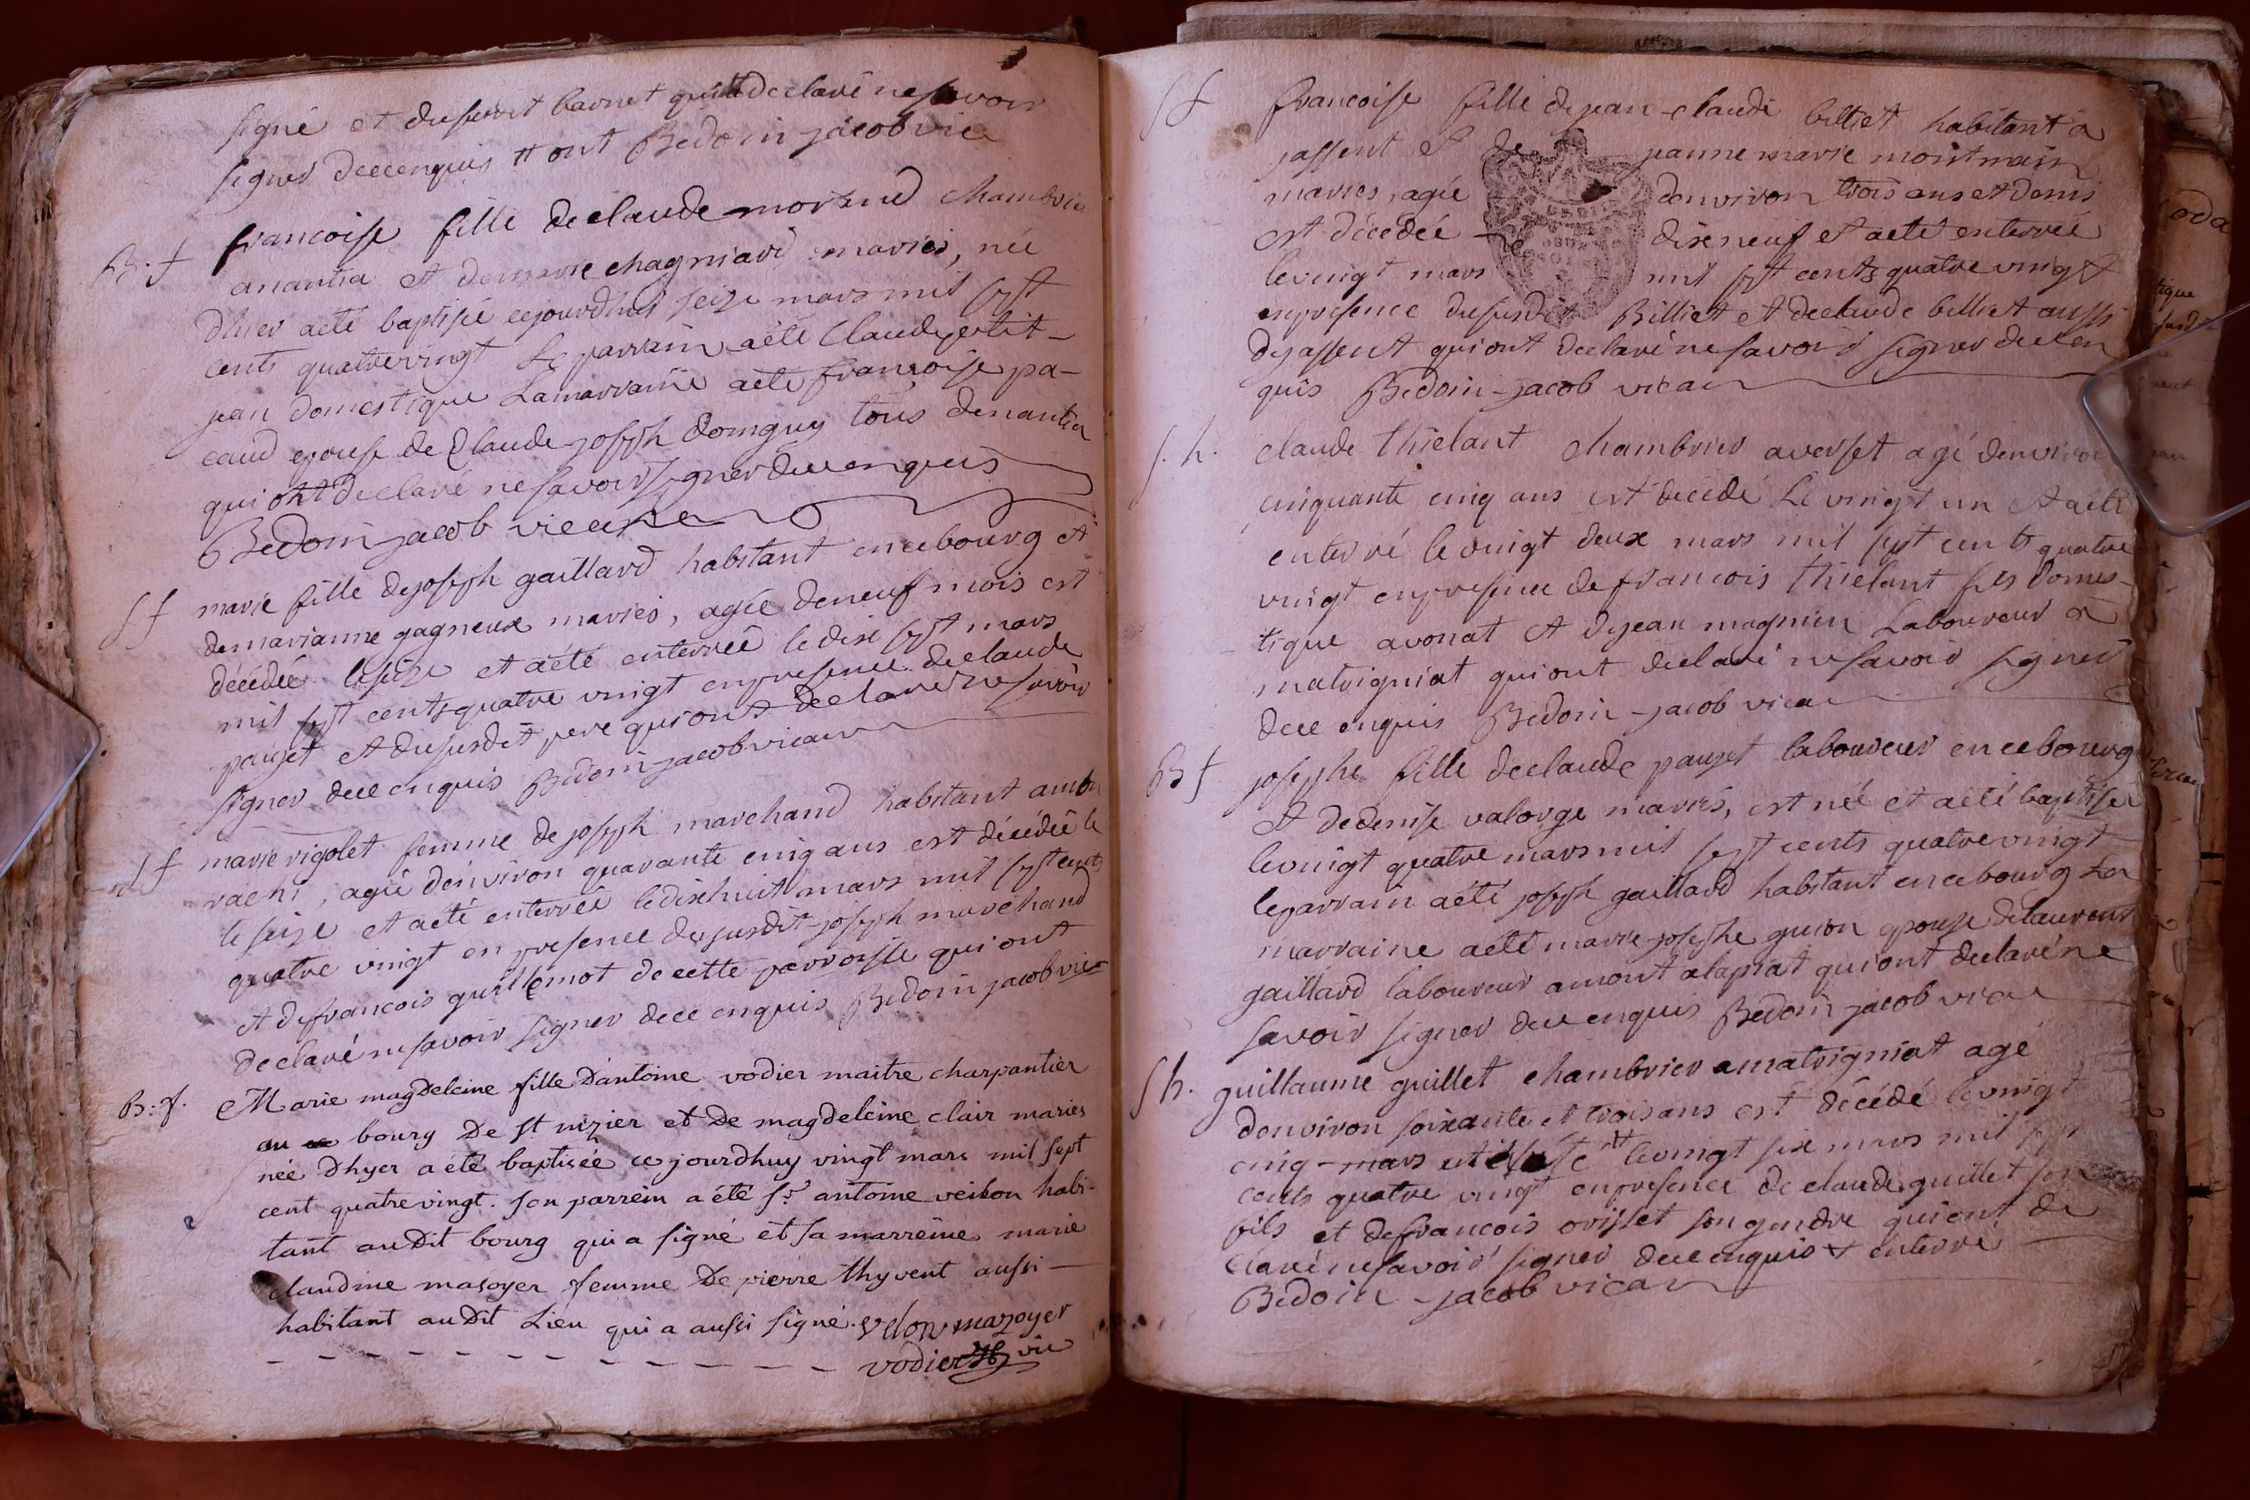 signé et du susdit barnet qui ont declaré ne savoir
signer de ce enquis Bedoin jacob vic
B. f françoise fille de claude morand chambrier
anantia et de marie chagniard mariés, née
d'hier a eté baptisée ce jourdhui seize mars mil sept
cents quatrevingt Le parrain a eté Claude petit-
jean domestique La marraine a eté françoise pa-
caud epouse de Claude joseph domguy tous de nantia
qui ont declaré ne savoir signer de ce enquis
Bedoin jacob vicaire
S f marie fille de joseph gaillard habitant en ce bourg et
de marianne gagneux mariés, agée de neuf mois est
décédée le seize et a été enterrée le dix sept mars
mil sept cents quatre vingt en presence de claude
pauget et du susdit pere qui ont declaré ne savoir
signer de ce enquis Bedoin jacob vicaire
S f marie rigolet femme de joseph marchand habitant
agée d'environ quarante cinq ans est décédée le
le seize et a eté enterrée le dixhuit mars mil sept cents
quatre vingt en presence du susdit joseph marchand
et de francois guillemot de cette parroisse qui ont
declaré ne savoir signer de ce enquis Bedoin jacob vic
B: f. Marie magdeleine fille D'antoine vodier maitre charpantier
au bourg De st nizier et De magdeleine clair mariés
née D'hyer a été baptisée ce jourdhuy vingt mars mil sept
cent quatre vingt. son parrein a été sr antoine veilon habi-
tant au Dit bourg qui a signé et sa marreine marie
claudine masoyer femme De pierre thyvent aussi
habitant au Dit Lieu qui a aussi signé. velon mazoyer
vodier vic
S f francoise fille de jean-claude billiet habitant a
jassent et de jeanne marie montmain
mariés, agée d'environ trois ans et demi
est décedée le dixneuf et a eté enterrée
le vingt mars mil sept cents quatre vingt
en presence du susdit Billiet et de claude billiet aussi
de jassent qui ont declaré ne savoir signer de ce en
quis Bedoin-jacob vicar
S. h. claude thielant chambrier a verset agé d'environ
cinquante cinq ans est décédé Le vingt un et a eté
enterré le vingt deux mars mil sept cents quatre
vingt en presence de francois thielant fils domes-
tique a vonat et de jean magnien Laboureur a
matrigniat qui ont declaré ne savoir signer
de ce enquis Bedoin-jacob vicar
B f josephe fille de claude pauget laboureur en ce bourg
et de denise valorge mariés, est née et a eté baptisée
le vingt quatre mars mil sept cents quatre vingt
le parrain a eté joseph gaillard habitant en ce bourg La
marraine a eté marie-josephe guion epouse de laurent
gaillard laboureur a mont alapiat qui ont declaré ne
savoir signer de ce enquis Bedoin jacob vicar
S h. guillaume guillet chambrier a matrigniat agé
d'environ soixante et trois ans est décédé le vingt
cinq-mars et a eté le vingt six mars mil sept
cents quatre vingt en presence de claude guillet son
fils et de francois orisset son gendre qui ont de
claré ne savoir signer de ce enquis + enterré
Bedoin-jacob vicar